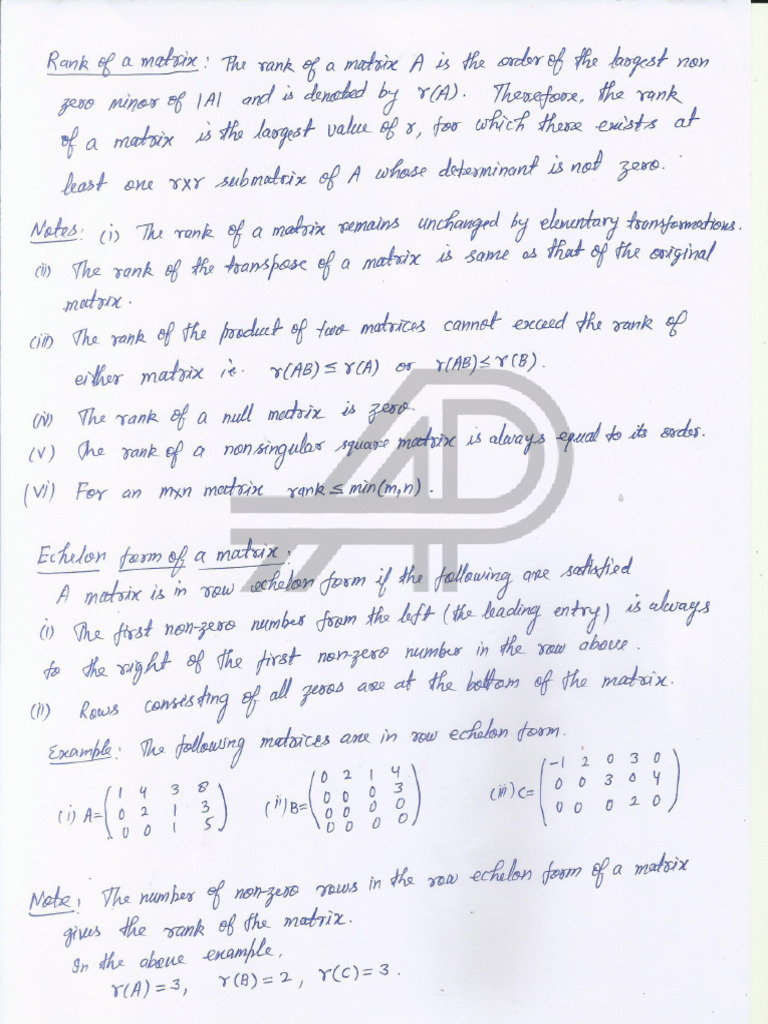 Rank of a matrix: The rank of a matrix A is the order of the largest non
zero minor of |A| and is denoted by r(A). Therefore, the rank
of a matrix is the largest value of r, for which there exists at
least one r×r submatrix of A whose determinant is not zero.
Notes: (i) The rank of a matrix remains unchanged by elementary transformations.
(ii) The rank of the transpose of a matrix is same as that of the original
matrix.
(iii) The rank of the product of two matrices cannot exceed the rank of
either matrix i.e. r(AB) ≤ r(A) or r(AB) ≤ r(B).
(iv) The rank of a null matrix is zero.
(v) The rank of a nonsingular square matrix is always equal to its order.
(vi) For an m×n matrix rank ≤ min(m,n).
Echelon form of a matrix:
A matrix is in row echelon form if the following are satisfied
(i) The first non-zero number from the left (the leading entry) is always
to the right of the first non-zero number in the row above.
(ii) Rows consisting of all zeros are at the bottom of the matrix.
Example: The following matrices are in row echelon form.
(i) A = (1 4 3 8
0 2 1 3
0 0 1 5)
(ii) B = (0 2 1 4
0 0 0 3
0 0 0 0
0 0 0 0)
(iii) C = (-1 2 0 3 0
0 0 3 0 4
0 0 0 2 0)
Note: The number of non-zero rows in the row echelon form of a matrix
gives the rank of the matrix.
In the above example,
r(A) = 3, r(B) = 2, r(C) = 3.